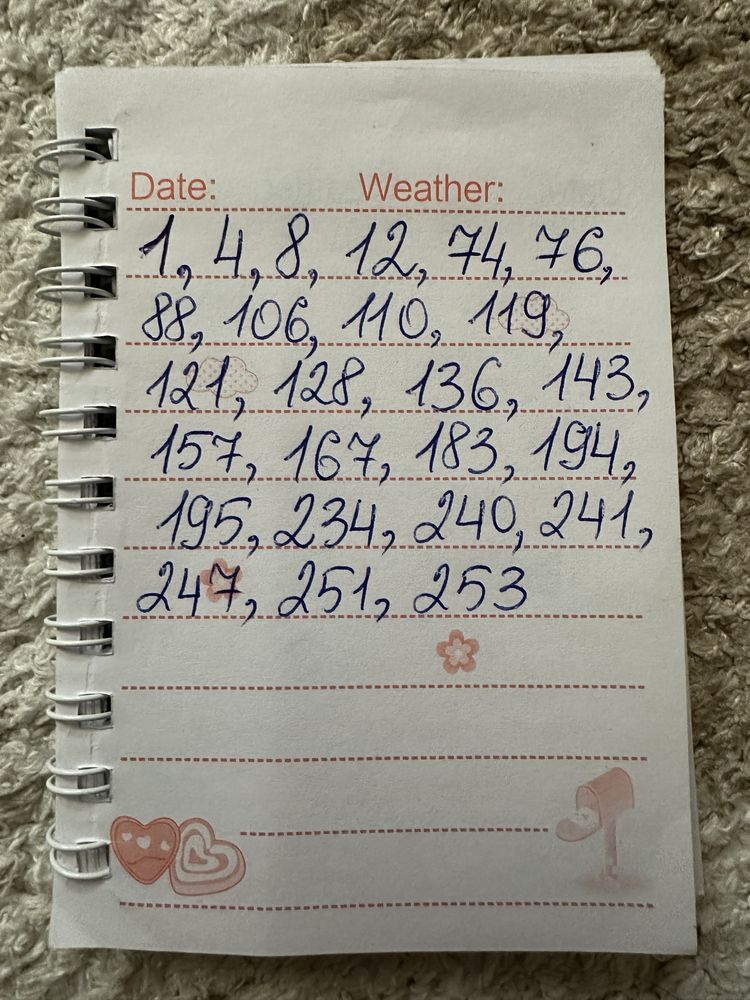 Date: Weather:
1, 4, 8, 12, 74, 76,
88, 106, 110, 119,
121, 128, 136, 143,
157, 167, 183, 194,
195, 234, 240, 241,
247, 251, 253